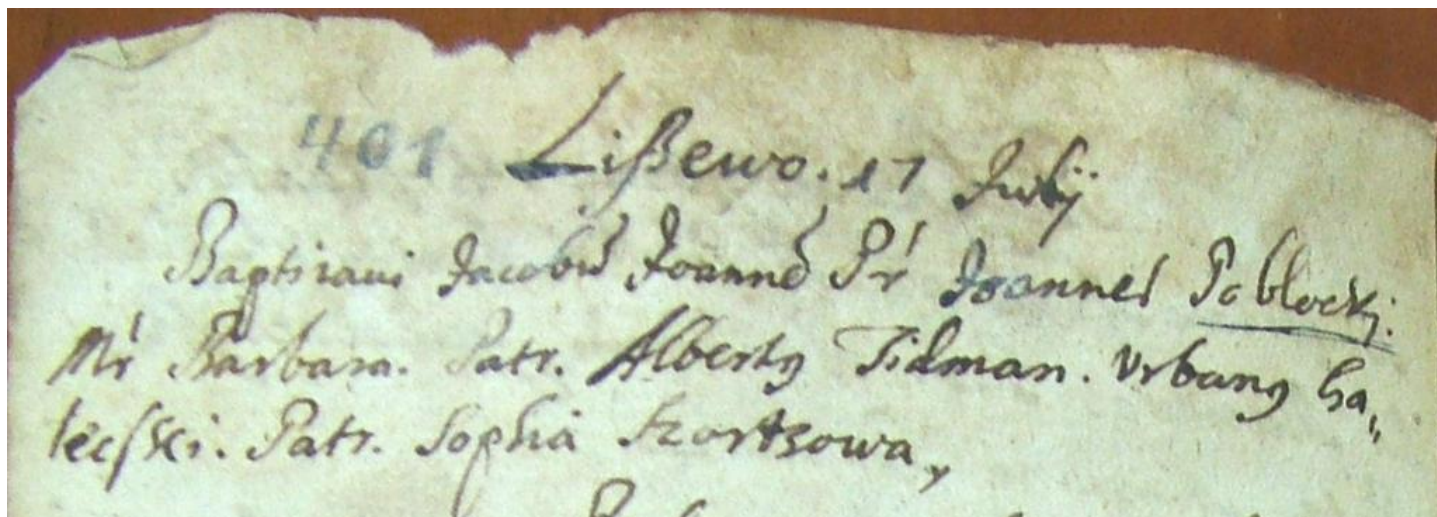 401 Lißewo. 17 Julij
Baptizaui Jacobũ Joannẽ Pr̃ Joannes Poblockj.
Mr̃ Barbara. Patr. Albertꝯ Tidman. Vrbanꝯ Ga„
lecſki. Patr. Sophia Szortzowa,